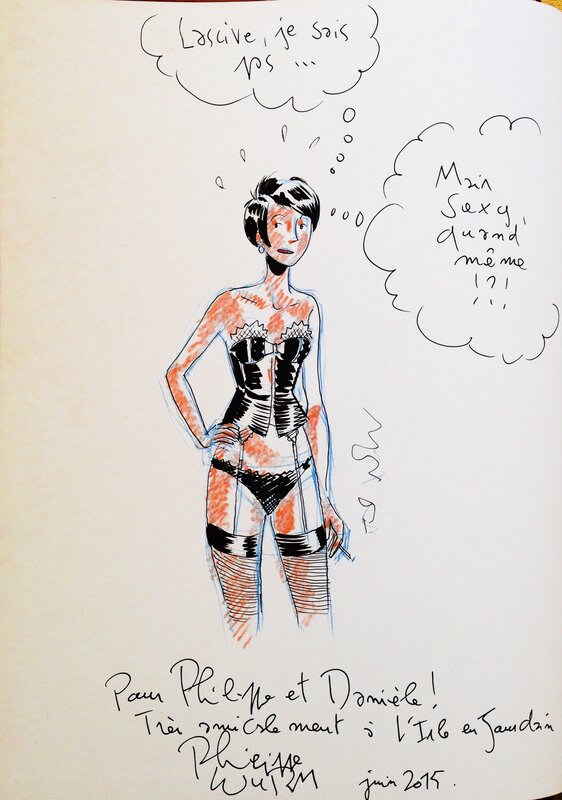 Lascive, je sais
ps ...
Mais
sexy,
quand
même
!?!
!!!
Pour Philippe et Danièle !
Très amicalement à l'Isle en Jourdain
Philippe
WURM
juin 2015.